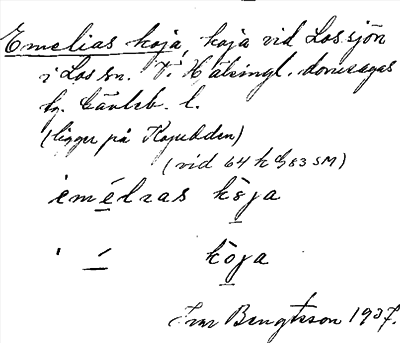 Emelias koja, koja vid Lossjön
i Los sn. V. Hälsingl. domsagas
fg. Gävleb. l.
(ligger på Kojudden)
(vid 64 h G 83 SM)
emélias kòja
' é kòja
Ivar Bengtsson 1937.